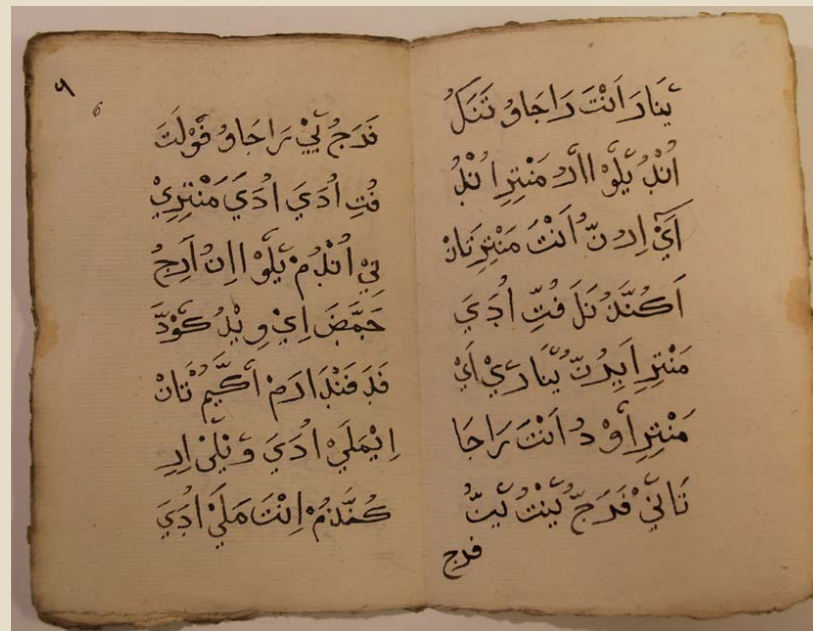 يٚنَارَ اَنْتَ رَاجَاوُ تَنَكُ
اُنْدُ يٚلَوْ اارُ مَنْتِرِ اُنْدُ
اَيْ اِرُ نُّ اَنْتَ مَنْتِرِتَانْ
اَكُنَّدُ نَلَ فُتِّ اُدَيَ
مَنْتِرِ اَيِرُنُّ يٚنَارَيْ اَيْ
مَنْتِرِاَوْ دُ اَنْتَ رَاجَا
تَانَيْ فَرَجُّ يٚنْتُ يٚتُ
فرج
٩
6
فَرَجُ يٚيْ رَاجَاوُ فَوْلَتَ
فُتِ اُدَيَ اُدَيَ مَنْتِرِيْ
تِيْ اُنْدُمْ يٚلَوْ اانُ اَرِجُ
حَمَّضَ اِيْ وِيْدُ كَوْدَّ
فَدَ فَنْدَارَمْ اَكَّيُمْ تَانْ
اِيْمَلَيْ اُدَيَ وٚيْلَيْ اِرِ
كُنَّدُمْ اِنْتَ مَلَيْ اُدَيَ